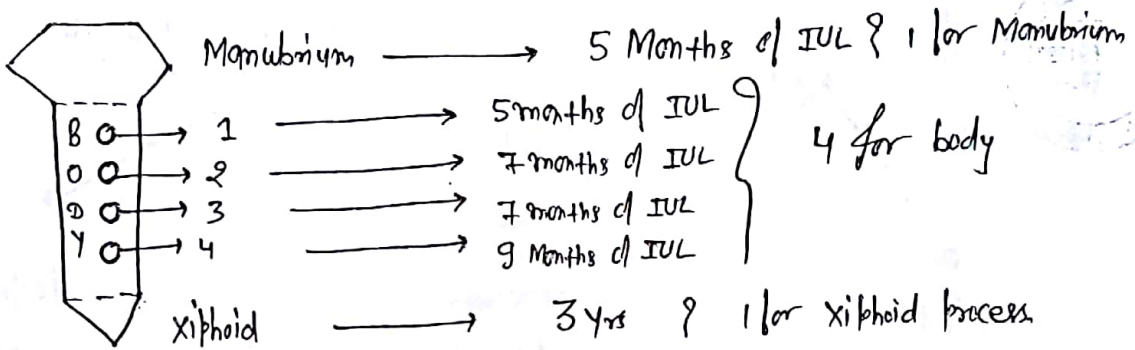 Manubrium → 5 Months of IUL } 1 for Manubrium
B → 1 → 5 months of IUL
O → 2 → 7 months of IUL
D → 3 → 7 months of IUL
Y → 4 → 9 Months of IUL
} 4 for body
Xiphoid → 3 Yrs } 1 for xiphoid process